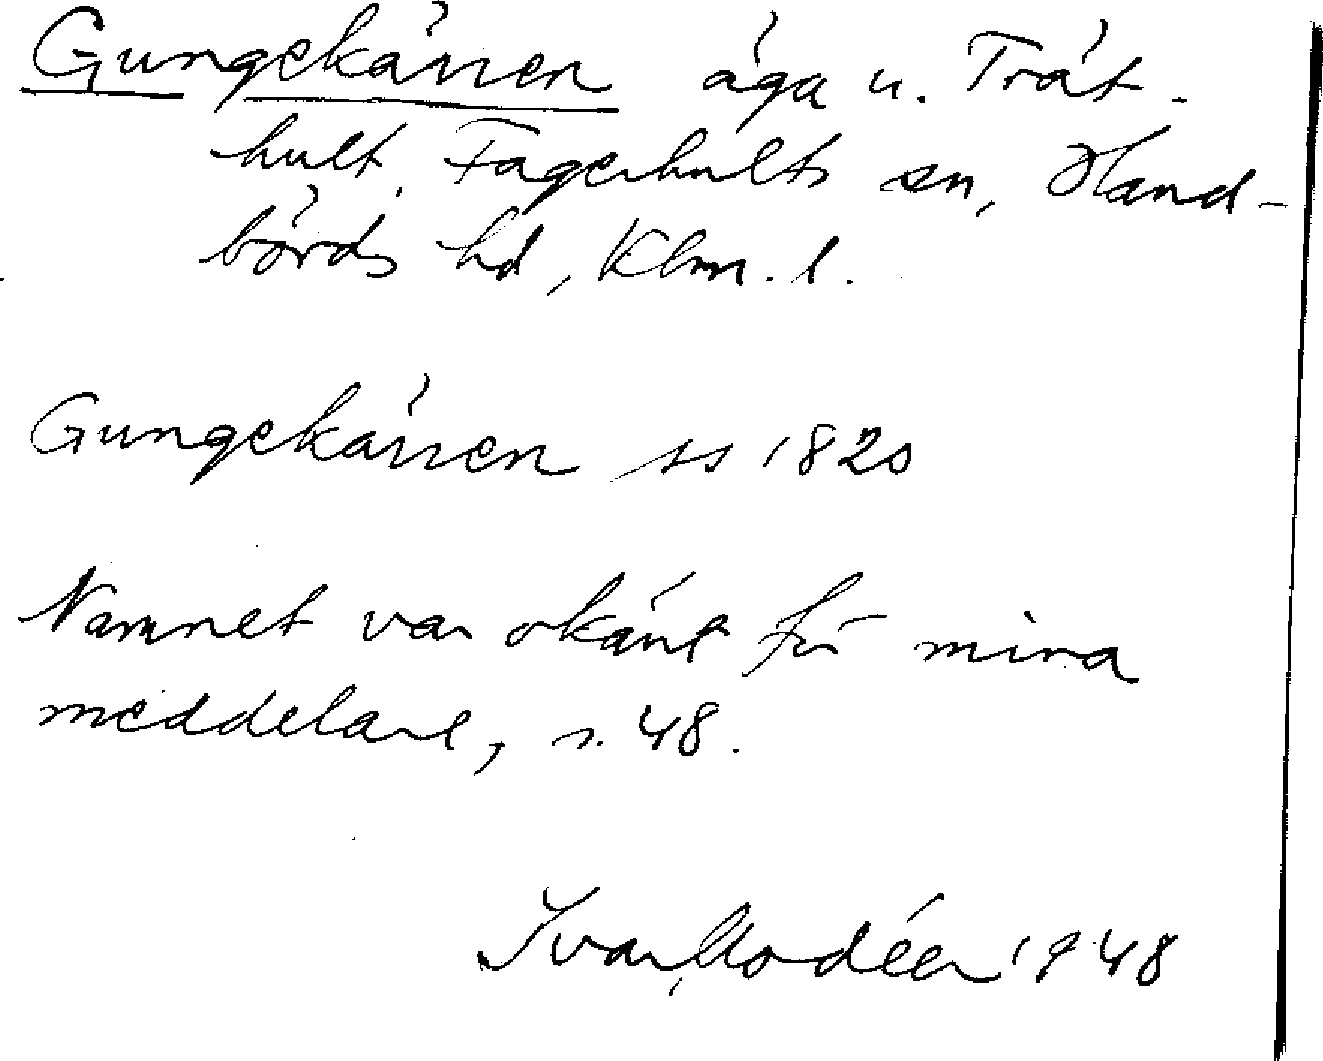 Gungekärren äga u. Trät-
hult, Fagerhults sn, Hand-
börds hd, Klm. l.
Gungekärren ss 1820
Namnet var okänt för mina
meddelare, s. 48.
Ivar Modéer 1948